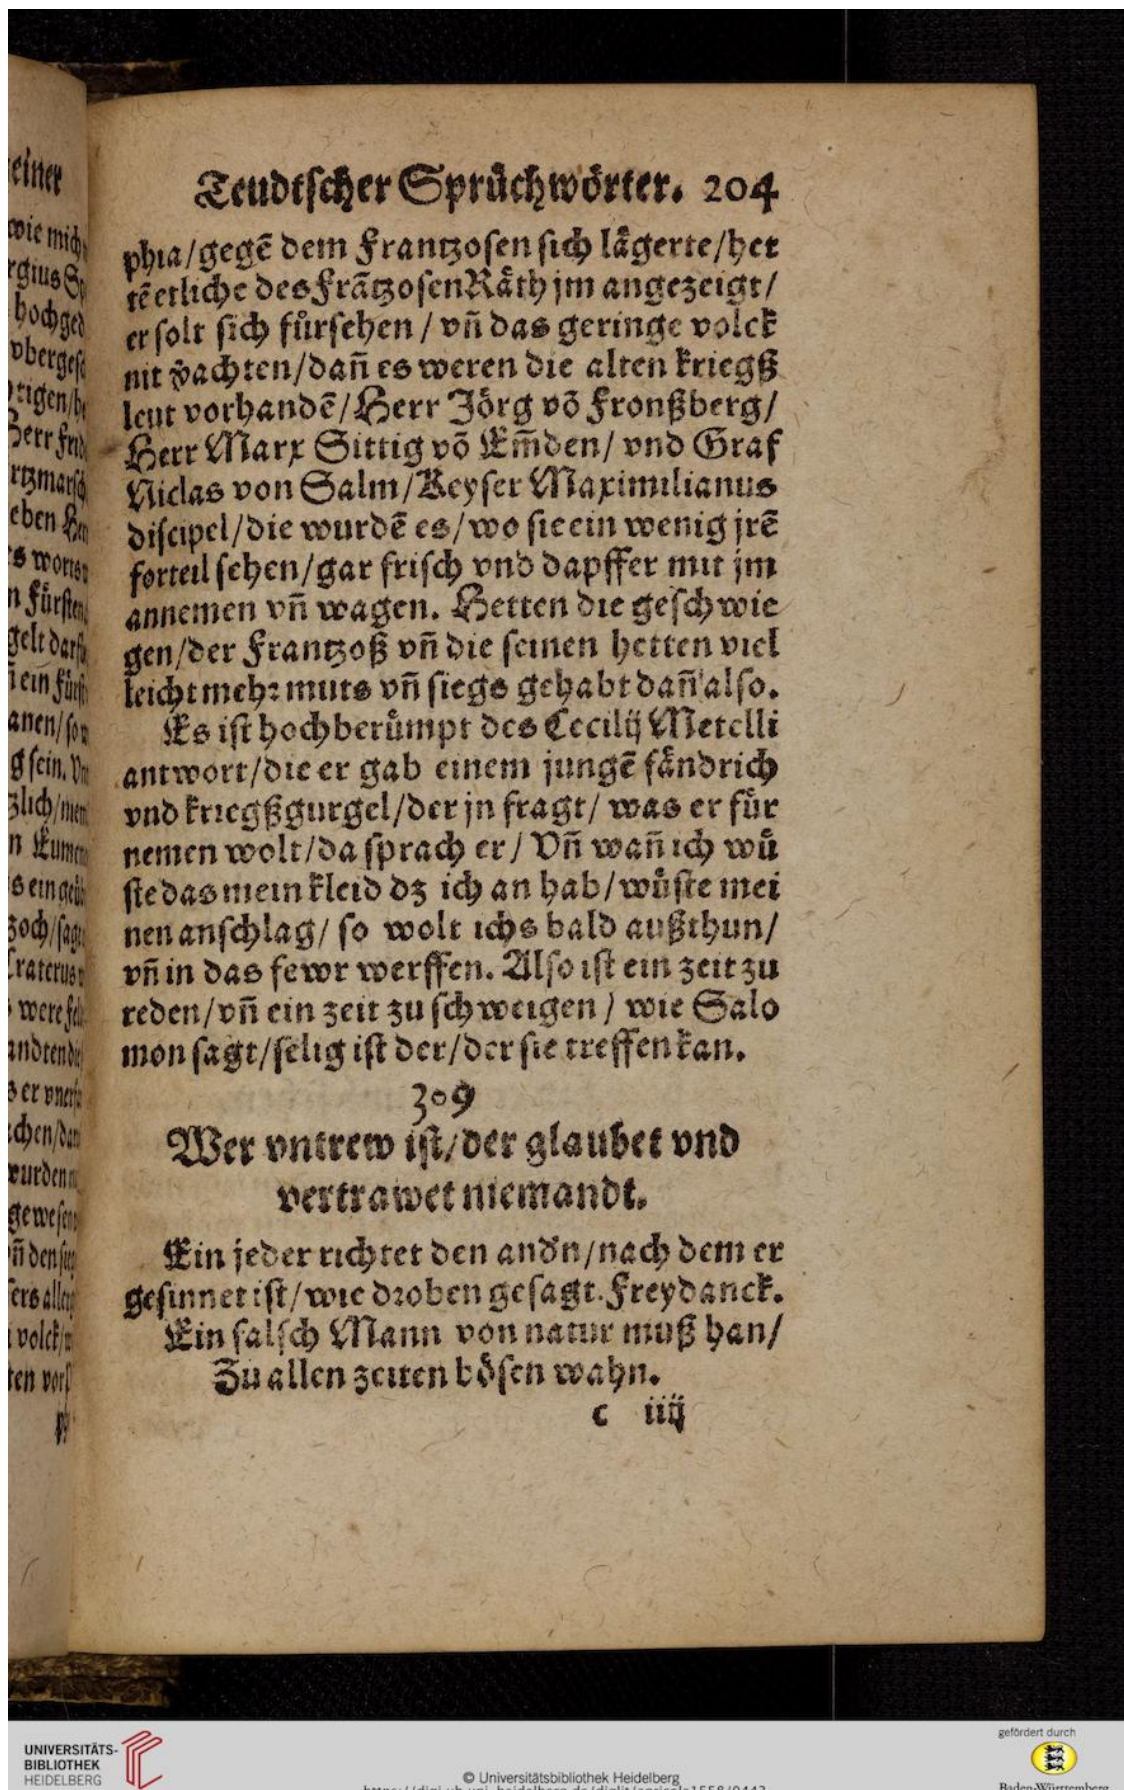 Teudtscher Sprůchwörter. 204
phia/gegẽ dem Frantzosen sich lägerte/het
tẽ etliche des Frãtzosen Räth jm angezeigt/
er solt sich fůrsehen / vñ das geringe volck
nit v̈achten/dañ es weren die alten kriegß
leut vorhandẽ/Herr Jörg võ Fronßberg/
Herr Marx Sittig võ Em̃den/ vnd Graf
Niclas von Salm/Keyser Maximilianus
discipel/die wurdẽ es/wo sie ein wenig jrẽ
forteil sehen/gar frisch vnd dapffer mit jm
annemen vñ wagen. Hetten die geschwie
gen/der Frantzoß vñ die seinen hetten viel
leicht mehr muts vñ siegs gehabt dañ also.
Es ist hochberůmpt des Cecilij Metelli
antwort/die er gab einem jungẽ fändrich
vnd kriegßgurgel/der jn fragt/ was er fůr
nemen wolt/da sprach er / Vñ wañ ich wů
ste das mein kleid dz ich an hab/wůste mei
nen anschlag/ so wolt ichs bald außthun/
vñ in das fewr werffen. Also ist ein zeit zu
reden/vñ ein zeit zu schweigen / wie Salo
mon sagt/selig ist der/der sie treffen kan.
309
Wer vntrew ist/der glaubet vnd
vertrawet niemandt.
Ein jeder richtet den andn̄/nach dem er
gesinnet ist/wie droben gesagt. Freydanck.
Ein falsch Mann von natur muß han/
Zu allen zeiten bösen wahn.
c iiij
UNIVERSITÄTS-
BIBLIOTHEK
HEIDELBERG
© Universitätsbibliothek Heidelberg
gefördert durch
Baden-Württemberg